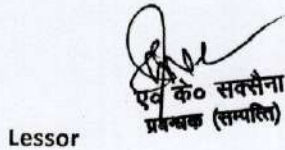 ए० के० सक्सैना
प्रबन्धक (सम्पत्ति)
Lessor